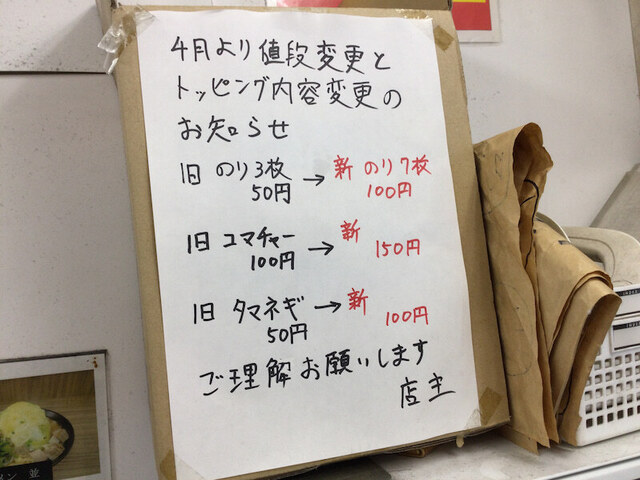 4月より値段変更と
トッピング内容変更の
お知らせ
旧 のり3枚 → 新 のり7枚
50円 100円
旧 コマチャー → 新
100円 150円
旧 タマネギ → 新
50円 100円
ご理解お願いします
店主
メン 並